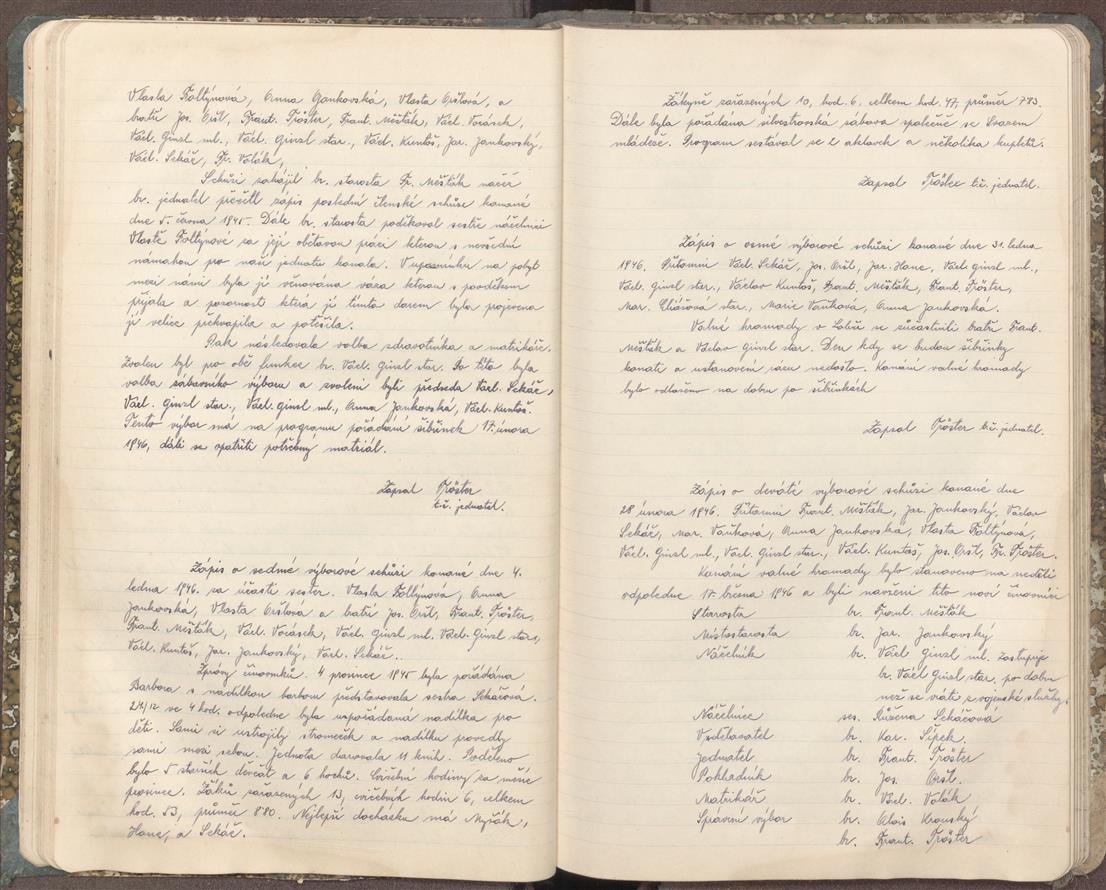 Vlasta Foltýnová, Anna Jankovská, Vlasta Oršlová, a
bratří Jos. Oršl, Frant. Tröster, Frant. Měšťák, Václ. Vorásek,
Václ. Ginzl ml., Václ. Ginzl star., Václ. Kuntoš, Jar. Jankovský,
Václ. Sekáč, Fr. Volák,
Schůzi zahájil br. starosta Fr. Měšťák načež
br. jednatel přečetl zápis poslední členské schůze konané
dne 5. června 1945. Dále br. starosta poděkoval sestře náčelnici
Vlastě Foltýnové za její obětavou práci kterou s nevšední
námahou pro naši jednotu konala. V upomínku na pobyt
mezi námi byla jí věnována váza kterou s povděkem
přijala a pozornost která jí tímto darem byla projevena
jí velice překvapila a potěšila.
Pak následovala volba zdravotníka a matrikáře.
Zvolen byl pro obě funkce br. Václ. Ginzl star. Po této byla
volba zábavního výboru a zvoleni byli předseda Václ. Sekáč,
Václ. Ginzl star., Václ. Ginzl ml., Anna Jankovská, Václ. Kuntoš.
Tento výbor má na programu pořádání šibřinek 17. února
1946, dáti se opatřiti potřebný matriál.
Zapsal Tröster
t.č. jednatel.
Zápis o sedmé výborové schůzi konané dne 4.
ledna 1946. za účasti sester. Vlasta Foltýnova, Anna
Jankovská, Vlasta Oršlová a bratří Jos. Oršl, Frant. Tröster,
Frant. Měšťák, Václ. Vorásek, Václ. Ginzl ml. Václ. Ginzl star.,
Václ. Kuntoš, Jar. Jankovský, Vacl. Sekáč.
Zprávy činovníků. 4 prosince 1945 byla pořádána
Barbora s nadílkou barboru představovala sestra Sekáčová.
24/12 ve 4 hod. odpoledne byla uspořádaná nadílka pro
děti. Sami si ustrojily stromeček a nadílku provedly
sami mezi sebou. Jednota darovala 11 knih. Poděleno
bylo 5 starších děvčat a 6 hochů. Cvičební hodiny za měsíc
prosinec. Žáků zařazených 13, cvičebních hodin 6, celkem
hod. 53, průměr 8.80. Nejlepší docházku má Myšák,
Hanc, a Sekáč.
Žákyně zařazených 10, hod. 6. celkem hod. 47, průměr 7.83.
Dále byla pořádána silvestrovská zábava společně se Svazem
mládeže. Program sestával se z aktovek a několika kupletů.
Zapsal Tröster t.č. jednatel.
Zápis o osmé výborové schůzi konané dne 31. ledna
1946. Přítomni Václ. Sekáč, Jos. Oršl, Jar. Hanc, Václ. Ginzl ml.,
Václ. Ginzl star., Václav Kuntoš, Frant. Měšťák, Frant. Tröster,
Mar. Eliášová star., Marie Vaňková, Anna Jankovská.
Valné hromady v Labti se zúčastnili bratři Frant.
Měšťák a Václav Ginzl star. Den kdy se budou šibřinky
konati a ustanovení rázu nedošlo. Konání valné hromady
bylo odloženo na dobu po šibřinkách
Zapsal Tröster t.č. jednatel.
Zápis o deváté výborové schůzi konané dne
28 února 1946. Přítomni Frant. Měšťák, Jar. Jankovský, Václav
Sekáč, Mar. Vaňková, Anna Jankovská, Vlasta Foltýnová,
Václ. Ginzl ml., Václ. Ginzl star., Václ. Kuntoš, Jos. Oršl, Fr. Tröster.
Konání valné hromady bylo stanoveno na neděli
odpoledne 17. března 1946 a byli navrženi tito noví činovníci
Starosta br. Frant. Měšťák
Místostarosta br. Jar. Jankovský
Náčelník br. Václ Ginzl ml. zastupuje
br. Václ Ginzl star. po dobu
než se vrátí z vojenské služby.
Náčelnice ses. Růžena Sekáčová
Vzdělavatel br. Kar. Šípek.
Jednatel br. Frant. Tröster
Pokladník br. Jos. Oršl.
Matrikář br. Václ. Volák
Správní výbor br. Alois Kronský
br. Frant. Tröster